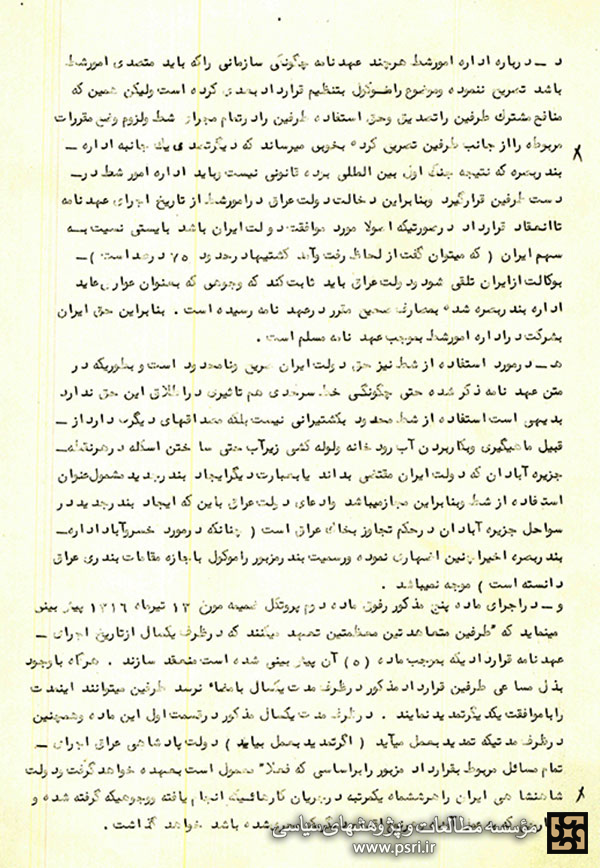 د ــ درباره اداره امورشط هرچند عهدنامه چگونگی سازمانی راکه باید متصدی امورشط
باشد تصریح ننموده وموضوع راموکول بتنظیم قرارداد بعدی کرده است ولیکن همین که
منافع مشترک طرفین راتصدیق وحق استفاده طرفین رادرتمام مجرای شط ولزوم وضع مقررات
مربوطه رااز جانب طرفین تصریح کرده بخوبی میرساند که دیگرتصدی یک جانبه اداره ــ
بندربصره که نتیجه جنگ اول بین المللی بوده قانونی نیست وباید اداره امور شط درــ
دست طرفین قرارگیرد وبنابراین دخالت دولت عراق درامورشط از تاریخ اجرای عهدنامه
تاانعقاد قرارداد درصورتیکه اصولا مورد موافقت دولت ایران باشد بایستی نسبت بــه
سهم ایران ( که میتوان گفت از لحاظ رفت وآمد کشتیهادرحدود ۷۵ درصداست )ــ
بوکالت ازایران تلقی شود ودولت عراق باید ثابت کند که وجوهی که بعنوان عوارض عاید
اداره بندربصره شده بمصارف صحیح مقرر درعهد نامه رسیده است . بنابراین حق ایران
بشرکت دراداره امورشط بموجب عهد نامه مسلم است .
هــ درمورد استفاده از شط نیز حق دولت ایران صریح ونامحدود است وبطوریکه در
متن عهد نامه ذکر شده حتی چگونگی خط سرحدی هم تاثیری دراطلاق این حق ندارد
بدیهی است استفاده از شط محدود بکشتیرانی نیست بلکه مصداقهای دیگری دارداز ــ
قبیل ماهیگیری وبکاربردن آب رودخانه ولوله کشی زیرآب حتی ساختن اسکله درهرنقطهــ
جزیره آبادان که دولت ایران مقتضی بداند یابعبارت دیگرایجاد بندرجدید مشمول عنوان
استفاده از شط وبنابراین مجازمیباشد وادعای دولت عراق باین که ایجاد بندرجدیددر
سواحل جزیره آبادان درحکم تجاوز بخاک عراق است ( چنانکه درمورد خسروآباداداره ــ
بندربصره اخیراچنین اظهاری نموده ورسمیت بندرمزبور راموکول باجازه مقامات بندری عراق
دانسته است ) موجه نمیباشد .
و ــ دراجرای ماده پنج مذکور رفوق ماده دوم پروتکل ضمیمه مورخ ۱۳ تیرماه ۱۳۱۶ پیش بینی
مینماید که "طرفین متعاهدتین معظمتین تعهد میکنند که درظرف یکسال ازتاریخ اجرای ــ
عهدنامه قراردادیکه بموجب ماده (۵) آن پیش بینی شده است منعقد سازند . هرگاه باوجود
بذل مساعی طرفین قرارداد مذکور درظرف مدت یکسال بامضاء نرسد طرفین میتوانند این مدت
راباموافقت یکدیگرتمدید نمایند . درظرف مدت یکسال مذکور درقسمت اول این ماده وهمچنین
درظرف مدتیکه تمدید بعمل میآید ( اگرتمدید بعمل بیاید ) دولت پادشاهی عراق اجرای ــ
تمام مسائل مربوط بقرارداد مزبور رابراساسی که فعلا" معمول است بعهده خواهد گرفت ودولت
شاهنشاهی ایران راهرششماه یکمرتبه درجریان کارهائیکه انجام یافته ووجوهیکه گرفته شده و
شده باشد خواهد گذاشت .
مؤسسه مطالعات و پژوهشهای سیاسی
www.psri.ir